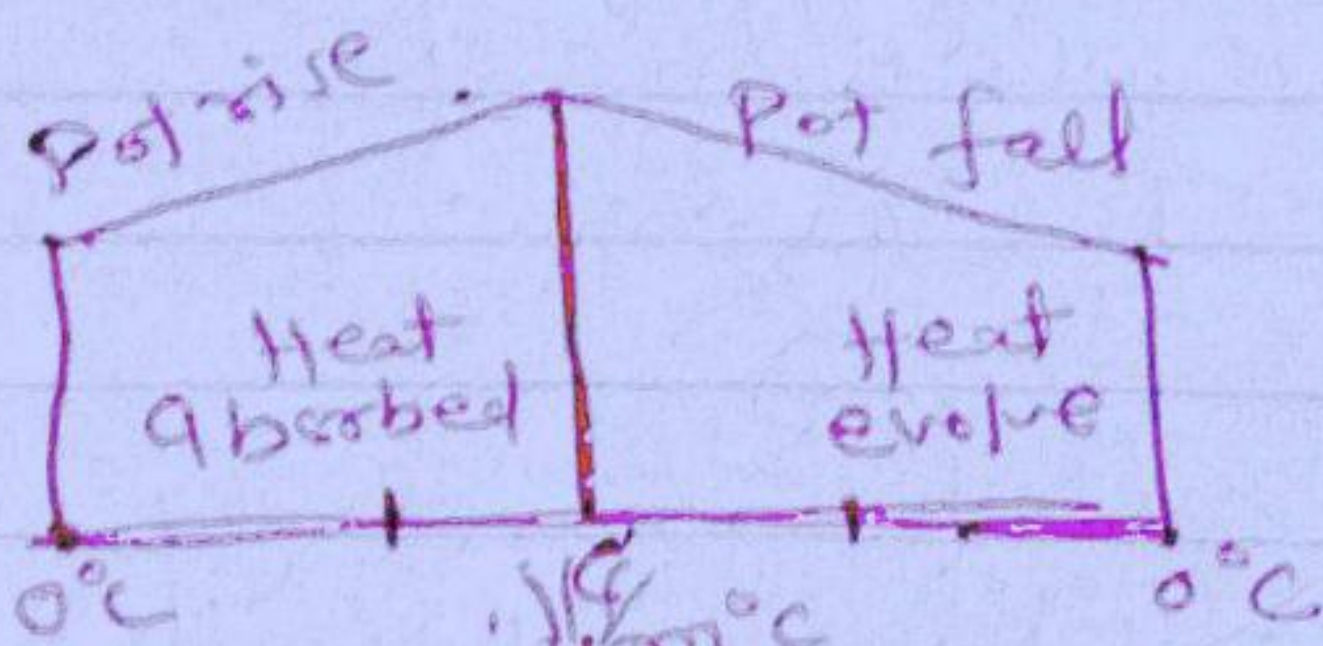 Pot rise
Pot fall
Heat
absorbed
Heat
evolve
0°C
C
°C
0°C